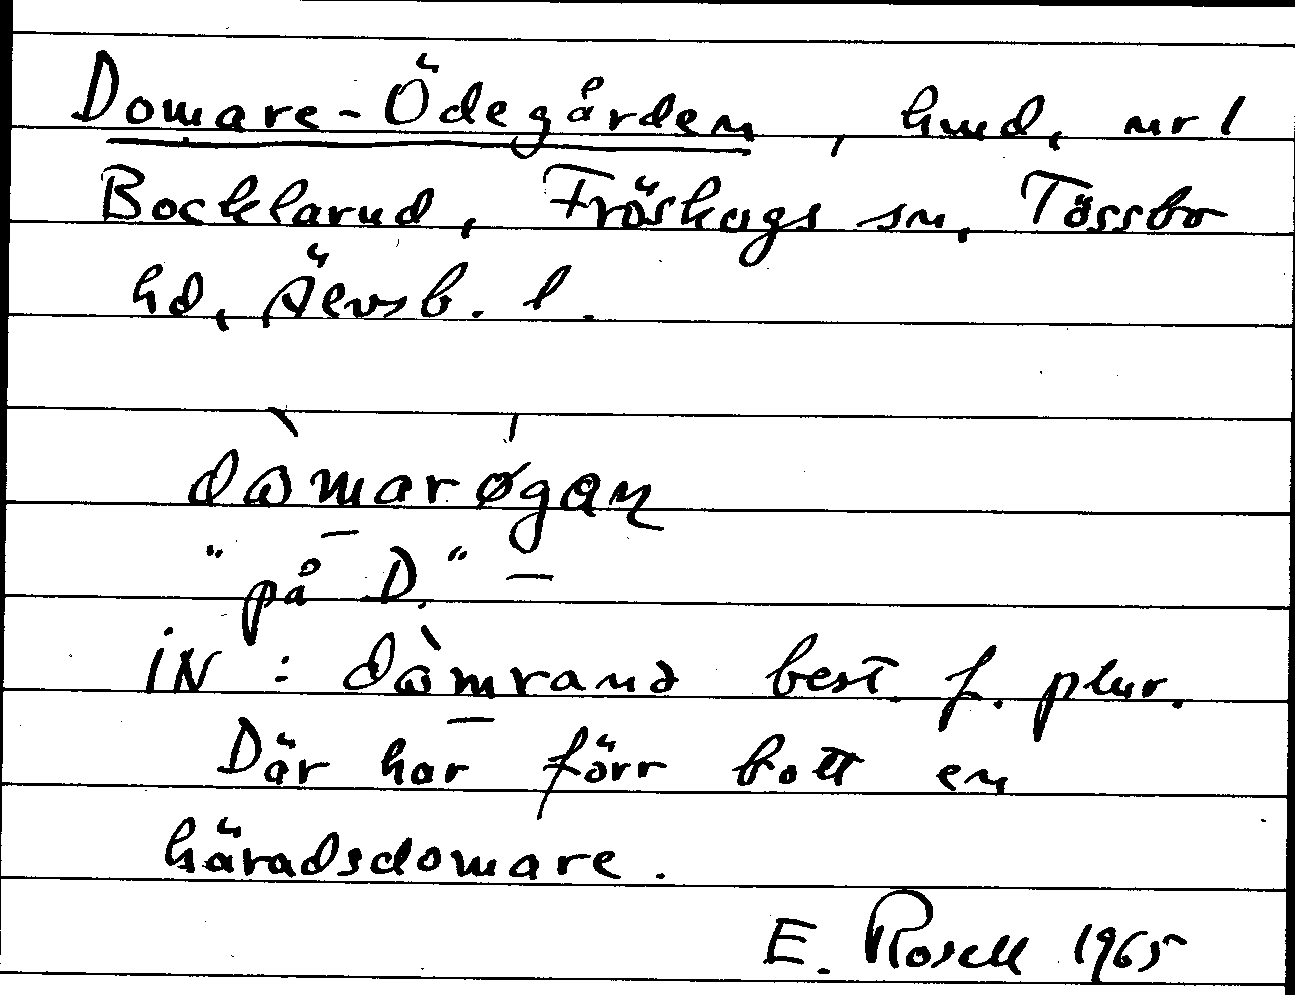 Domare-Ödegården, hmd, nr 1
Bocklarud, Fröskogs sn, Tössbo
hd, Älvsb. l.
dɷ̀marǿgaɳ
"på D." –
iN : dɷ̀mrana best. f. plur.
Där har förr bott en
häradsdomare.
E. Rosell 1965